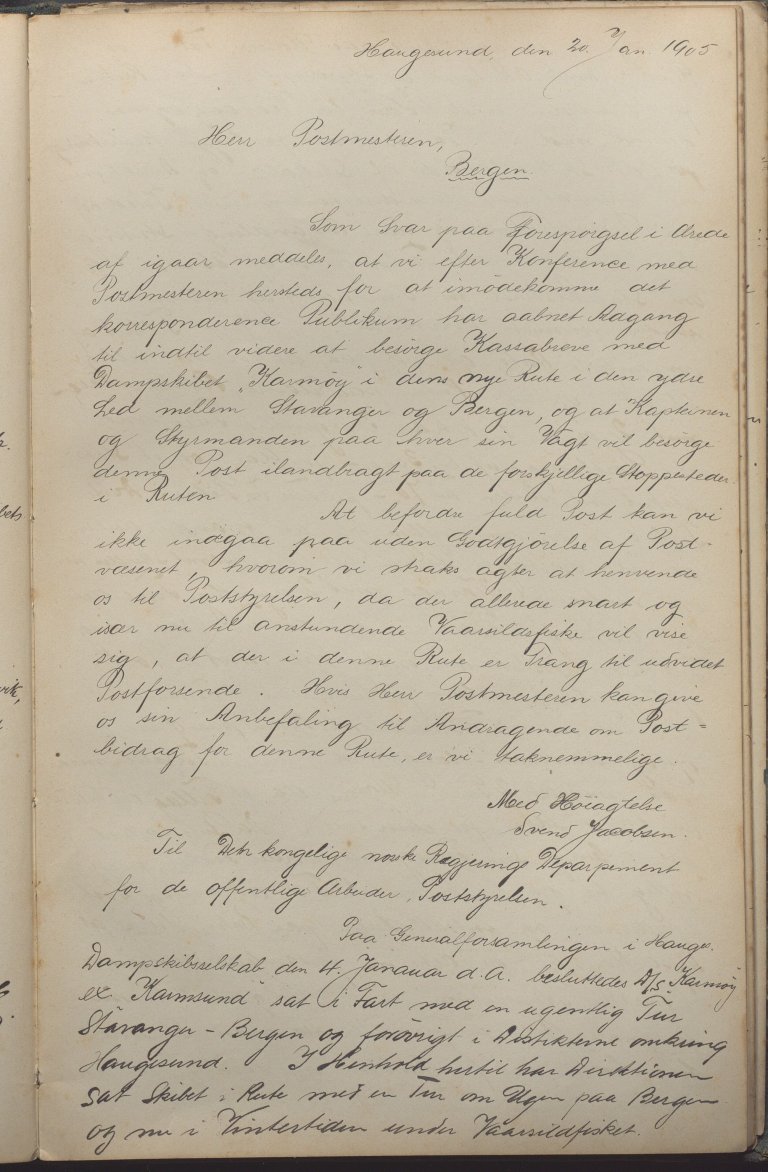 Haugesund, den 20. Jan. 1905
Herr Postmesteren,
Bergen.
Som Svar paa Forespörgsel i Ærede
af igaar meddeles, at vi efter Konference med
Postmesteren hersteds for at imödekomme det
korresponderence Publikum har aabnet Adgang
til indtil videre at besörge Kassabreve med
Dampskibet „Karmöy" i dens nye Rute i den ydre
Led mellem Stavanger og Bergen, og at Kapteinen
og Styrmanden paa hver sin Vagt vil besörge
denne Post ilandbragt paa de forskjellige Stoppesteder
i Ruten
At befordre fuld Post kan vi
ikke indgaa paa uden Godtgjörelse af Post-
væsenet, hvorom vi straks agter at henvende
os til Poststyrelsen, da der allerede snart og
især nu til anstundende Vaarsildfiske vil vise
sig, at der i denne Rute er Trang til udvidet
Postforsende. Hvis Herr Postmesteren kan give
os sin Anbefaling til Andragende om Post=
bidrag for denne Rute, er vi taknemmelige.
Med Höiagtelse
Svend Jacobsen.
Til Det kongelige norske Regjerings Deparpement
for de offentlige Arbeider, Poststyrelsen.
Paa Generalforsamlingen i Hauges.
Dampskibsselskab den 4. Januar d.A. besluttedes D/S „Karmöy
ex Karmsund" sat i Fart med en ugentlig Tur
Stavanger - Bergen og forövrigt i Distikterne omkring
Haugesund. I Henhold hertil har Direktionen
sat Skibet i Rute med en Tur om Ugen paa Bergen
og nu i Vintertiden under Vaarsildfisket.